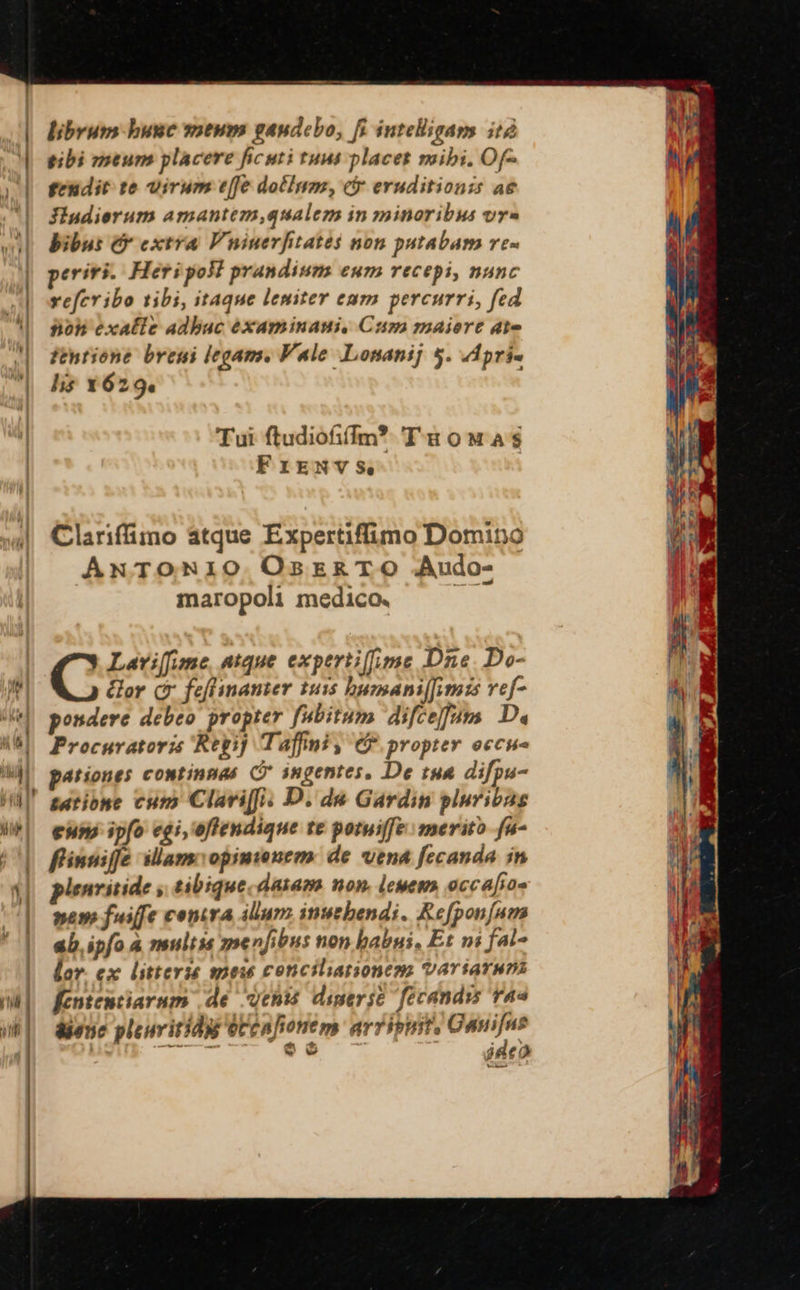 librum hunc meum gaudebo, ſi intelligam ità
tibi meum placere ſicuti tuus placet mihi. Oſ-
tendit te virum eſſe doctum, & eruditionis ac
ſtudiorum amantem, qualem in minoribus vr-
bibus & extra Vniuerſitates non putabam re-
periri. Heri poſt prandium eum recepi, nunc
reſcribo tibi, itaque leuiter eum percurri, ſed
non exacte adhuc examinaui. Cum maiore at-
tentione breui legam. Vale Louanij 5. Apri-
lis 1629.
Tui ſtudioſiſſmꝰ THOMAS
FIENVS.
Clariſſimo atque Expertiſſimo Domino
ANTONIO OBERTO Audo-
maropoli medico.
CLariſſime atque expertiſſime Dñe Do-
ctor & feſtinanter tuis humaniſſimis reſ-
pondere debeo propter ſubitum diſceſſum D.
Procuratoris Regij Taſſini, & propter occu-
pationes continuas & ingentes. De tua diſpu-
tatione cum Clariſſ. D. du Gardin pluribus
cum ipſo egi, oſtendique te potuiſſe merito ſu-
ſtinuiſſe illam opinionem de vena ſecanda in
pleuritide, tibique datam non leuem occaſio-
nem fuiſſe contra illum inuehendi. Reſponſum
ab ipſo à multis menſibus non habui, Et ni fal-
lor ex litteris meis conciliationem variarum
ſententiarum de venis diuersè ſecandis ra-
tione pleuritidis occaſionem arripuit, Gauiſus
adeo